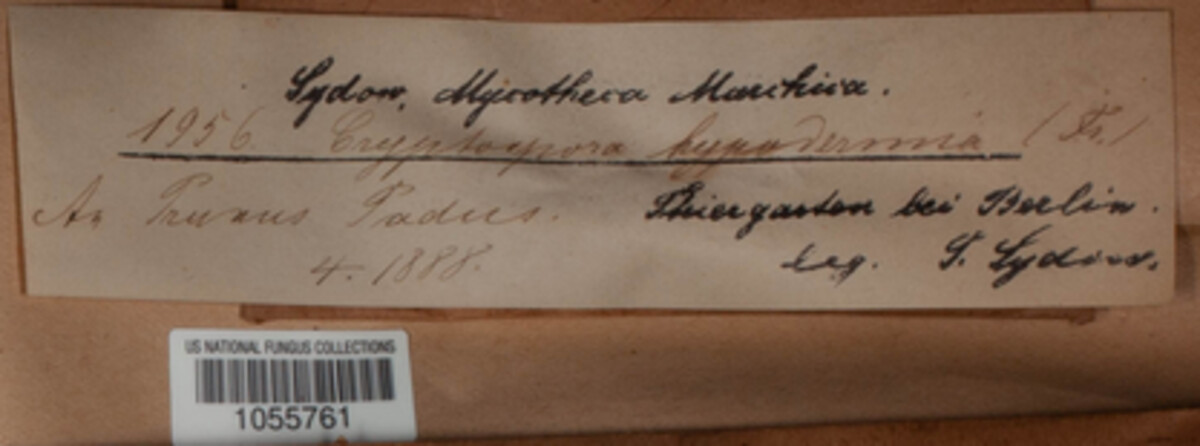 Sydow, Mycotheca Marchica.
1956. Cryptospora hypodermia (Fr.)
An Prunus Padus. Thiergarten bei Berlin.
4. 1888. leg. P. Sydow.
US NATIONAL FUNGUS COLLECTIONS
1055761